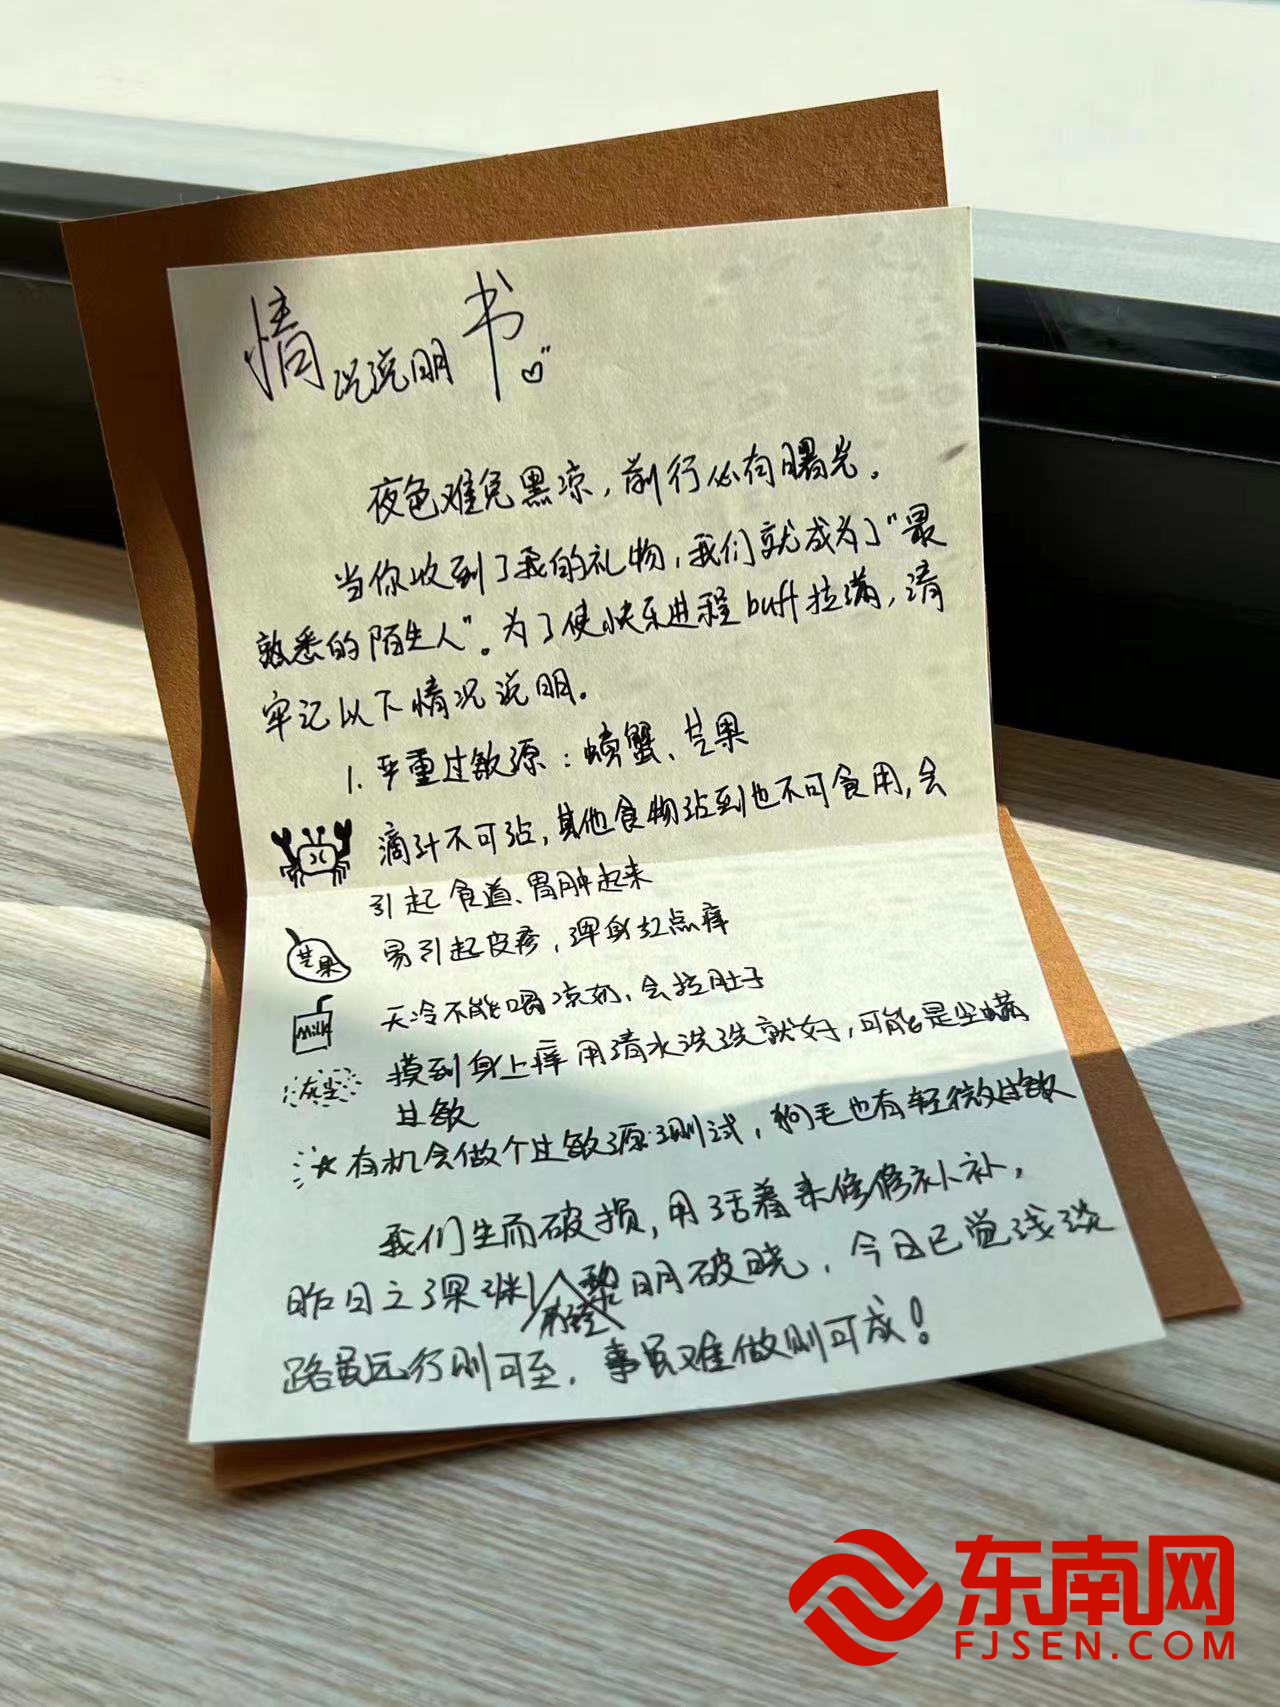 情况说明书
夜色难免黑凉，前行必有曙光。
当你收到了我的礼物，我们就成为了“最
熟悉的陌生人”。为了使快乐进程buff拉满，请
牢记以下情况说明。
1. 严重过敏源：螃蟹、芒果
滴汁不可沾，其他食物沾到也不可食用，会
引起食道、胃肿起来
芒果
易引起皮疹，浑身红点痒
milk
天冷不能喝凉奶，会拉肚子
灰尘
摸到身上痒用清水洗洗就好，可能是尘螨
过敏
☆有机会做个过敏源测试，狗毛也有轻微过敏
我们生而破损，用活着来修修补补，
昨日之深渊 黎明破晓，今日已觉浅淡
路虽远行则可至，事虽难做则可成！
东南网
FJSEN.COM